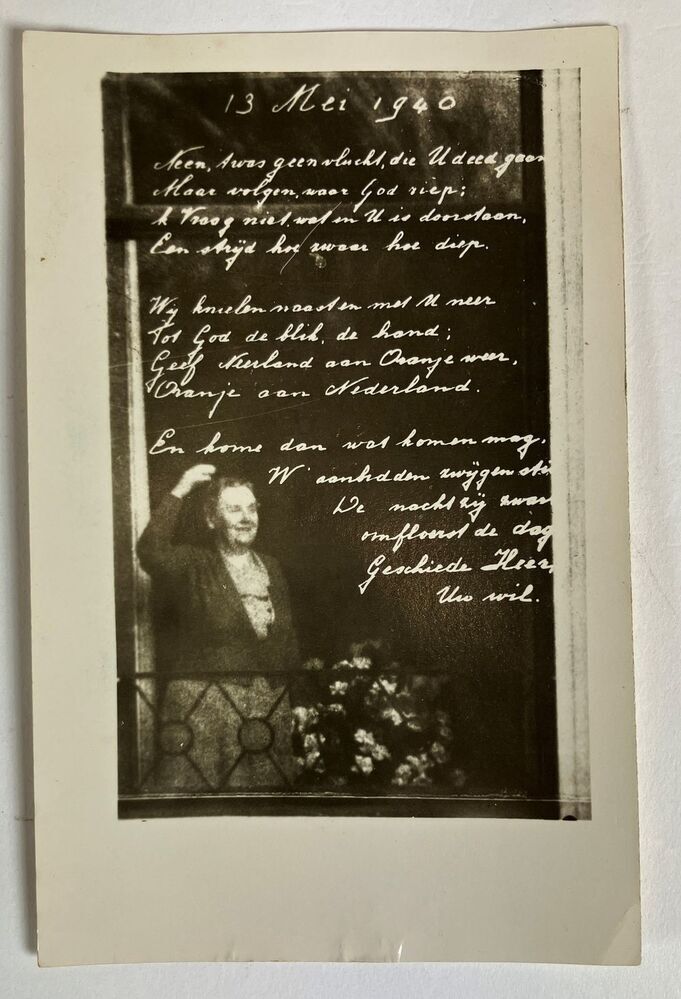 13 Mei 1940
Neen, 't was geen vlucht, die U deed gaan
Maar volgen, waar God riep;
'k Vraag niet, wat in U is doorstaan,
Een strijd hoe zwaar hoe diep.
Wij knielen naast en met U neer
Tot God de blik, de hand;
Geef Neerland aan Oranje weer,
Oranje aan Nederland.
En kome dan wat komen mag.
W' aanbidden zwijgen sti
De nacht zij zwar
omfloerst de dag
Geschiede Heer,
Uw wil.